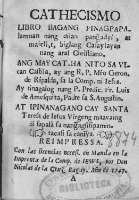 CATHECISMO
LIBRO BAGANG PINAGPAPA-
lamnan nang dilan pangadyi, at
maiclit, lagbag Calaylayan
nang aral Christiano.
ANG MAY CATHA NITO SA VI-
can Castila, ay ang R. P. Mro Geron.
de Ripalda, sa la Comp. ni Jesus.
Ay tinagalog nang P. Predic. Fr. Luis
de Amezquita, Padre sa S. Augustin.
AT IPINANAGANO CAY SANTA
Teresa de Jesus Virgeng matavaing
at sapala sa nangagpipanata
tacasi sa caniya.
8874
REIMPRESSA.
Con las licencias necess. en Manila en la
Imprenta de la Comp. de IESVS, por Don
Nicolas de la Cruz Bagay. Año de 1747.